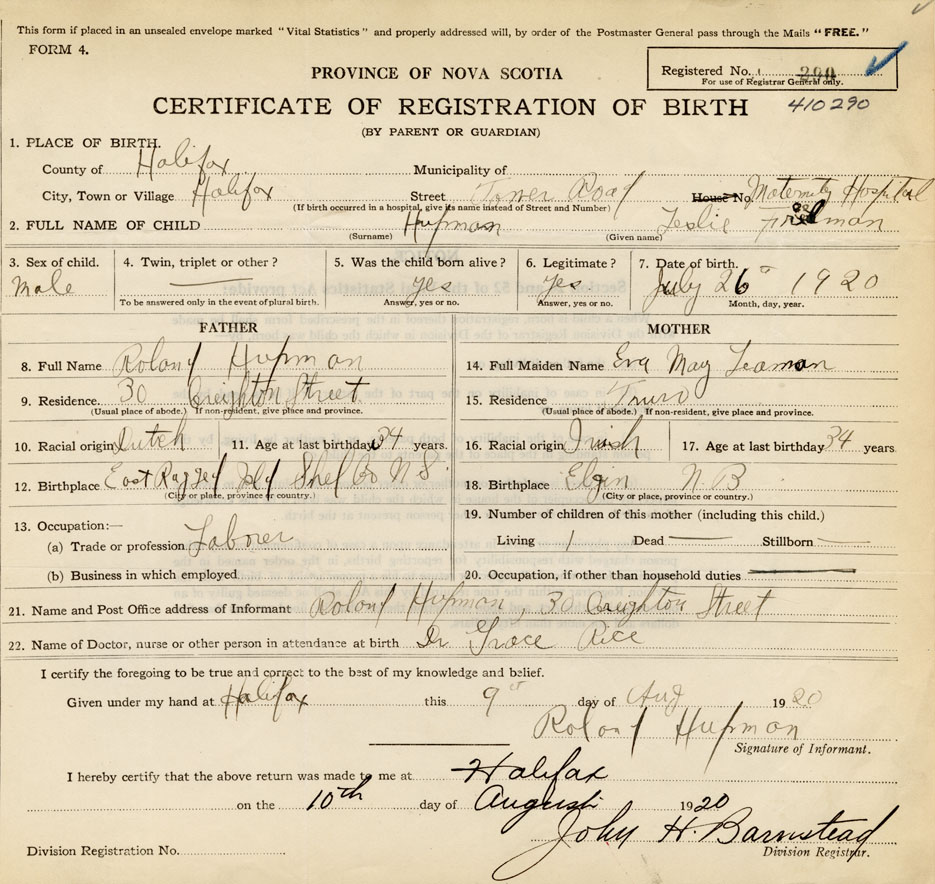 This form if placed in an unsealed envelope marked "Vital Statistics" and properly addressed will, by order of the Postmaster General pass through the Mails "FREE."
FORM 4.
Registered No. 290
For use of Registrar General only.
PROVINCE OF NOVA SCOTIA
CERTIFICATE OF REGISTRATION OF BIRTH 410290
(BY PARENT OR GUARDIAN)
1. PLACE OF BIRTH.
County of Halifax Municipality of
City, Town or Village Halifax Street Tower Road House No. Maternity Hospital
(If birth occurred in a hospital, give its name instead of Street and Number)
2. FULL NAME OF CHILD Hupman Leslie Freeman
(Surname) (Given name)
3. Sex of child. 4. Twin, triplet or other? 5. Was the child born alive? 6. Legitimate? 7. Date of birth.
Male yes yes July 26 1920
To be answered only in the event of plural birth. Answer, yes or no. Answer, yes or no. Month, day, year.
FATHER MOTHER
8. Full Name Roland Hupman 14. Full Maiden Name Eva May Leaman
9. Residence. 30 Creighton Street 15. Residence Truro
(Usual place of abode.) If non-resident, give place and province. (Usual place of abode.) If non-resident, give place and province.
10. Racial origin Dutch 11. Age at last birthday 34 years. 16. Racial origin Irish 17. Age at last birthday 34 years
12. Birthplace East Shelbo N S 18. Birthplace Elgin N B
(City or place, province or country.) (City or place, province or country.)
13. Occupation:— 19. Number of children of this mother (including this child.)
(a) Trade or profession Laborer Living 1 Dead Stillborn
(b) Business in which employed 20. Occupation, if other than household duties
21. Name and Post Office address of Informant Roland Hupman, 30 Creighton Street
22. Name of Doctor, nurse or other person in attendance at birth Dr Grace Rice
I certify the foregoing to be true and correct to the best of my knowledge and belief.
Given under my hand at Halifax this 9th day of Aug 1920
Roland Hupman
Signature of Informant.
I hereby certify that the above return was made to me at Halifax
on the 10th day of August 1920
John H. Barnstead
Division Registration No. Division Registrar.